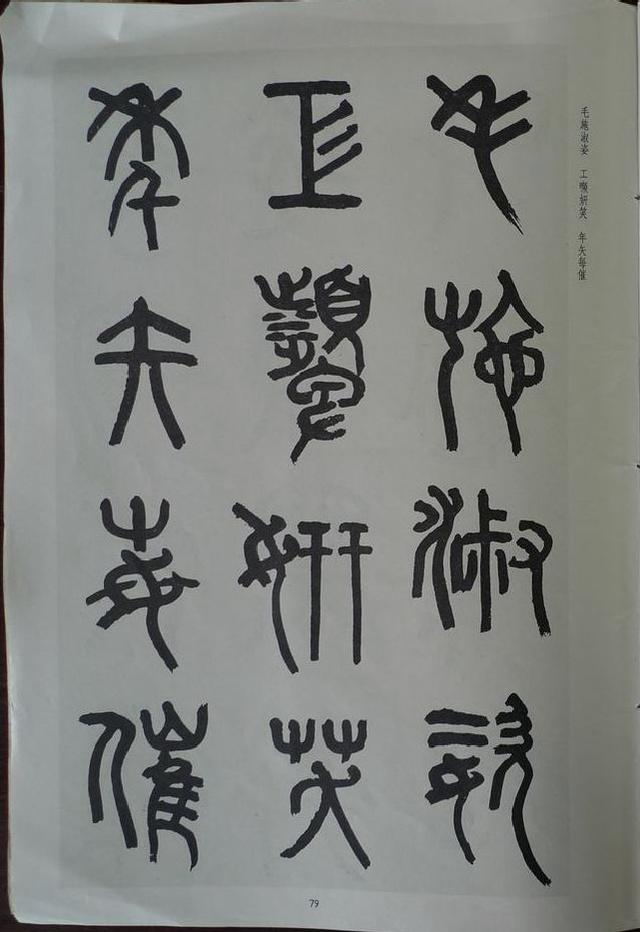 毛施淑姿 工嚬妍笑 年矢每催
毛施淑姿
工顰妍笑
年矢每催
79